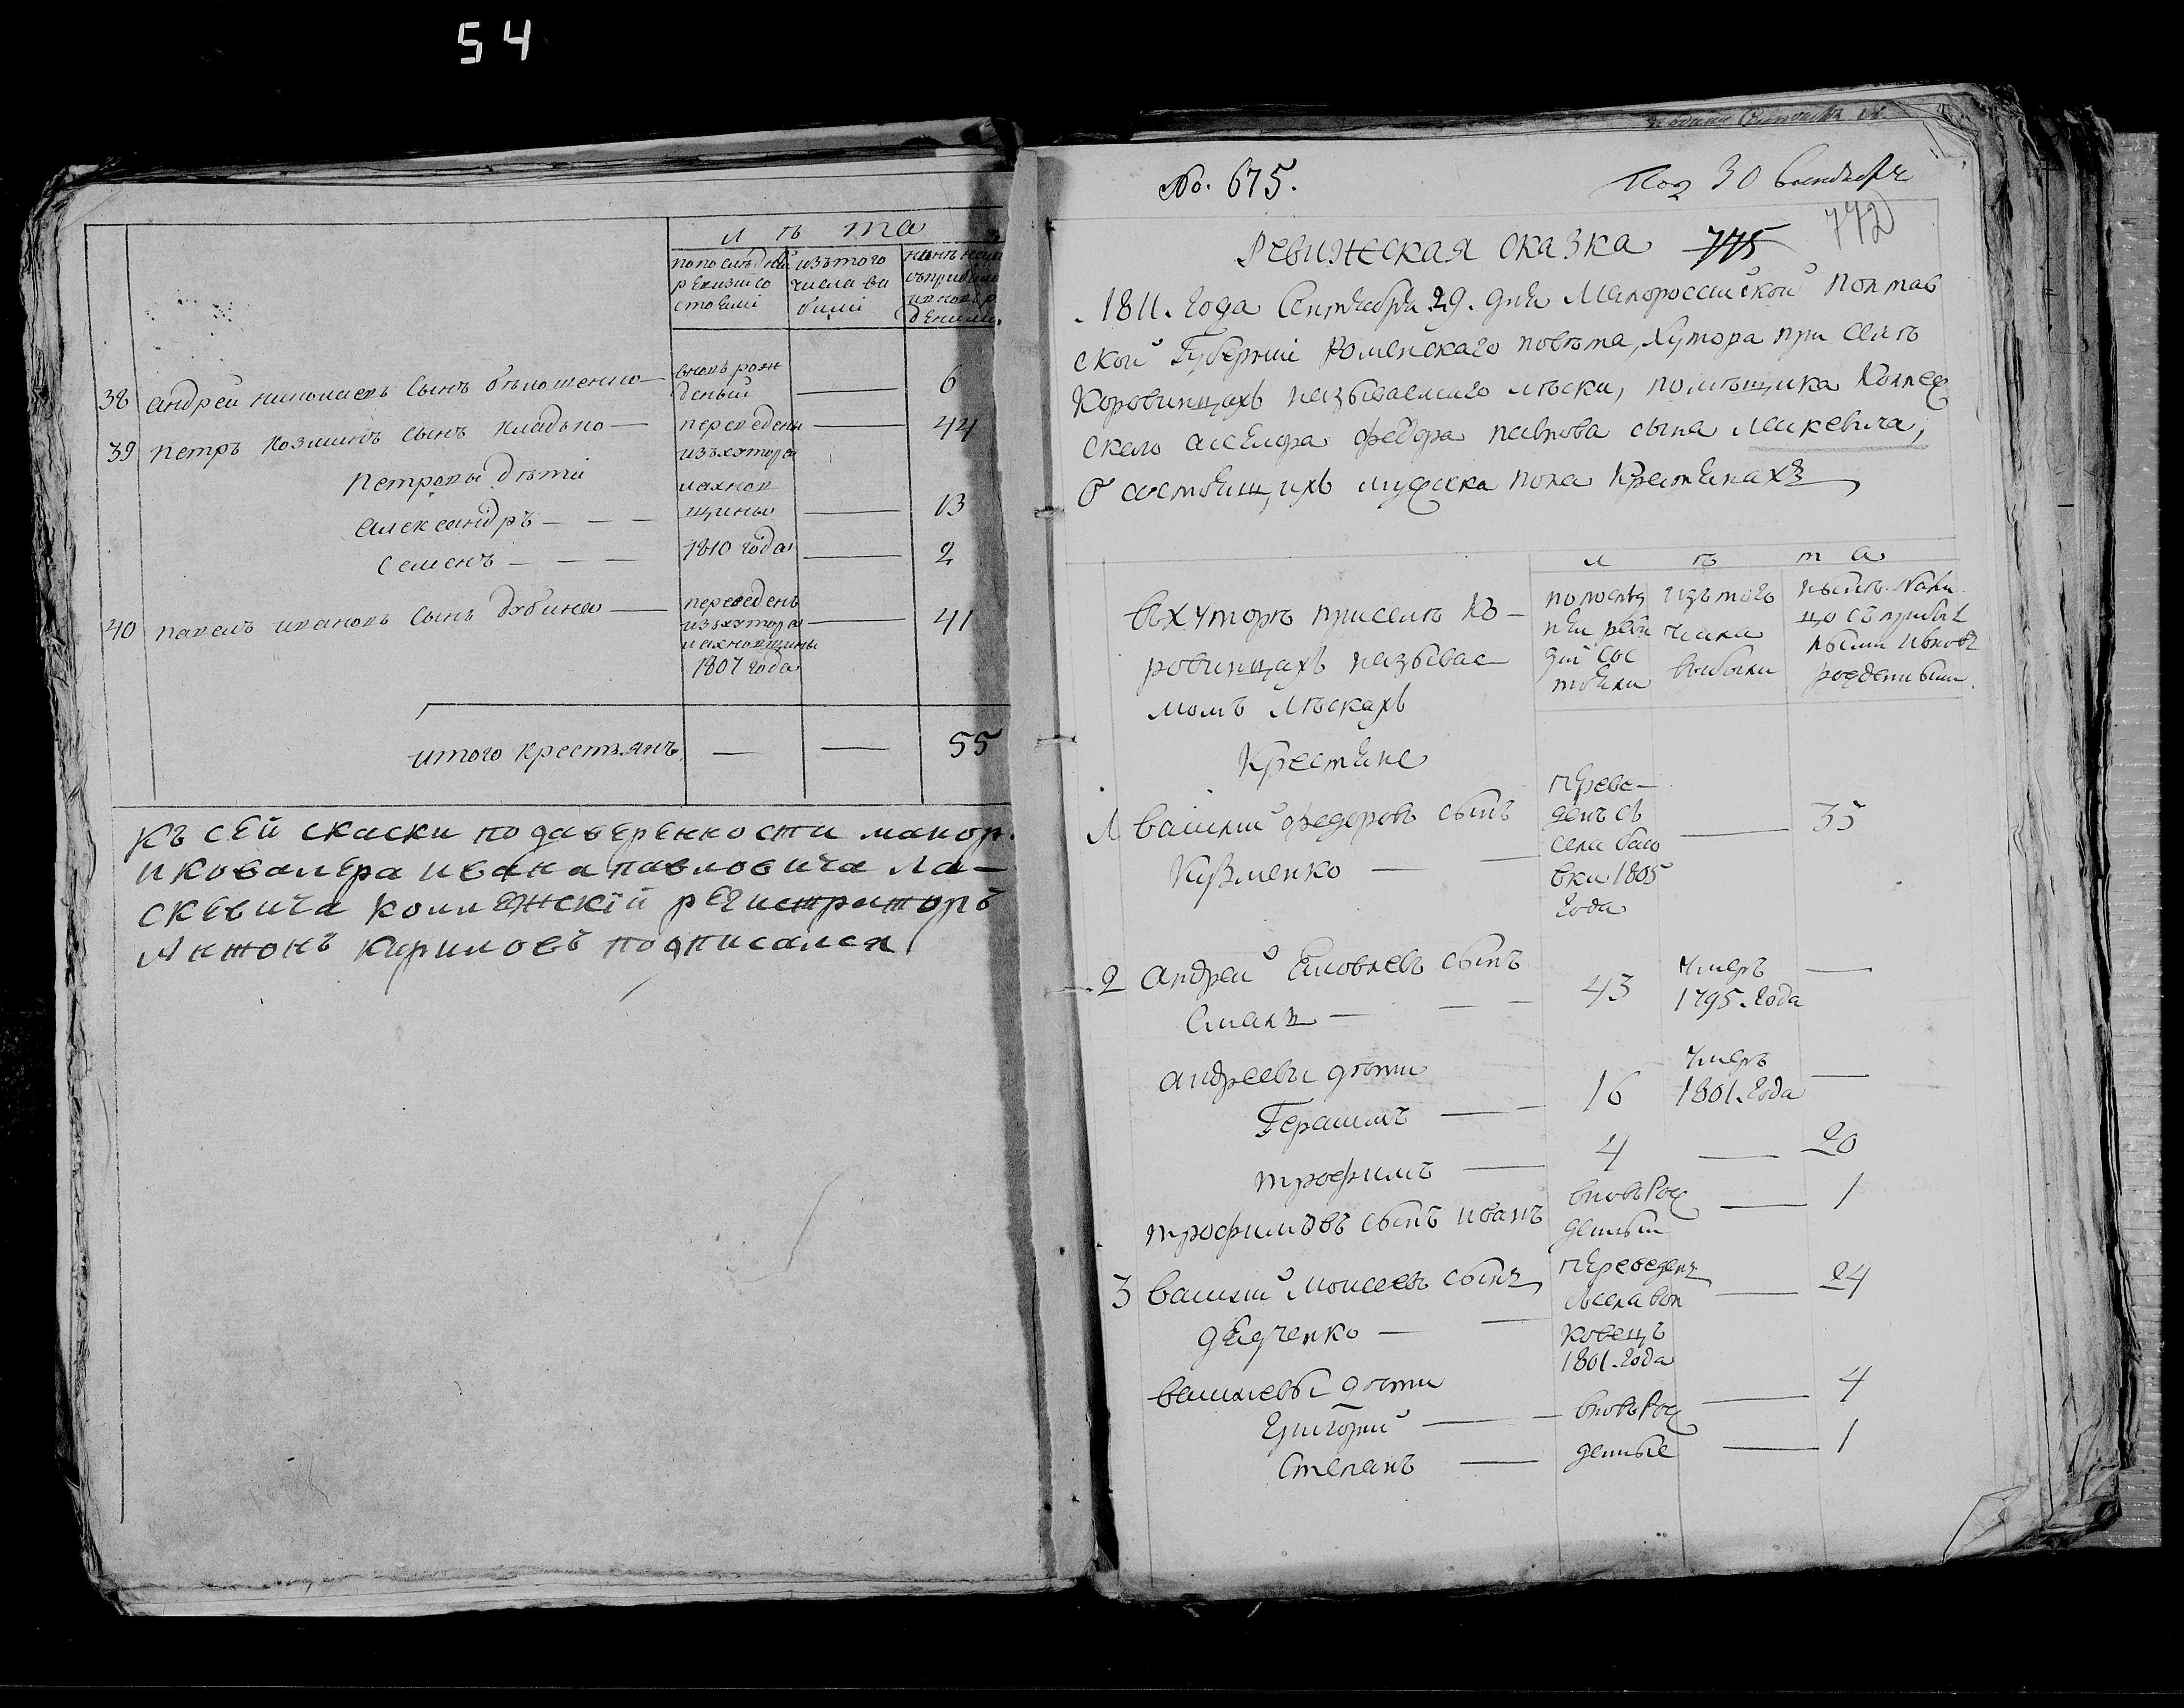 54
лѣта
по послѣдней ревизіи состояли
изъ того числа выбыли
38 андрей николаевъ сынъ белошенко — вновь рожденый — 6
39 петръ козминъ сынъ кладько — переведены — 44
изъ хутора
Петровы дѣти
лахновщины
александръ — — — 13
семенъ — — — 1810 года — 2
40 павелъ ивановъ сынъ дубина — переведенъ изъ хутора лахновщины 1807 года — 41
итого крестьянъ — — 55
Къ сей скаски по даверенности маиор.
и кавалера ивана павловича ла-
скевича коллежскій регистраторъ
Антонъ Кириловъ подписался
No. 675.
30
Ревижская сказка 775 772
1811. года Сентября 29. дня Малороссийской Полтав
ской Губерніи Роменскаго повѣта, хутора при селѣ
Коровинцахъ называемаго лѣски, помѣщика Коллеж
скаго асесора федора павлова сына Ласкевича,
О состоящихъ мужеска пола Крестянахъ
лѣта
въ хуторѣ при селѣ Ко-
ровинцахъ называе
момъ Лѣскахъ
по послѣд
ней реви
зіи сос
тояли
изъ того
числа
выбыли
нынѣ нали
цо съ прибы
лыми и вновь
рожденными
Крестяне
1 василий федоровъ сынъ
Кузменко — —
переве-
денъ съ
села басо
вки 1805
года
— 35
2 андрей Яковлевъ сынъ
Смалъ — — — 43 умеръ 1795. года —
андреевы дѣти
Герасимъ — — 16 умеръ 1801. года —
трофимъ — 4 — 20
трофимовъ сынъ иванъ вновь рожденый — 1
3 василий моисеевъ сынъ
дядченко — —
переведенъ
съ села вол
ковецъ
1801. года
— 24
василиевы дѣти
Григорий — — вновь рож — 4
Степанъ — деные — 1